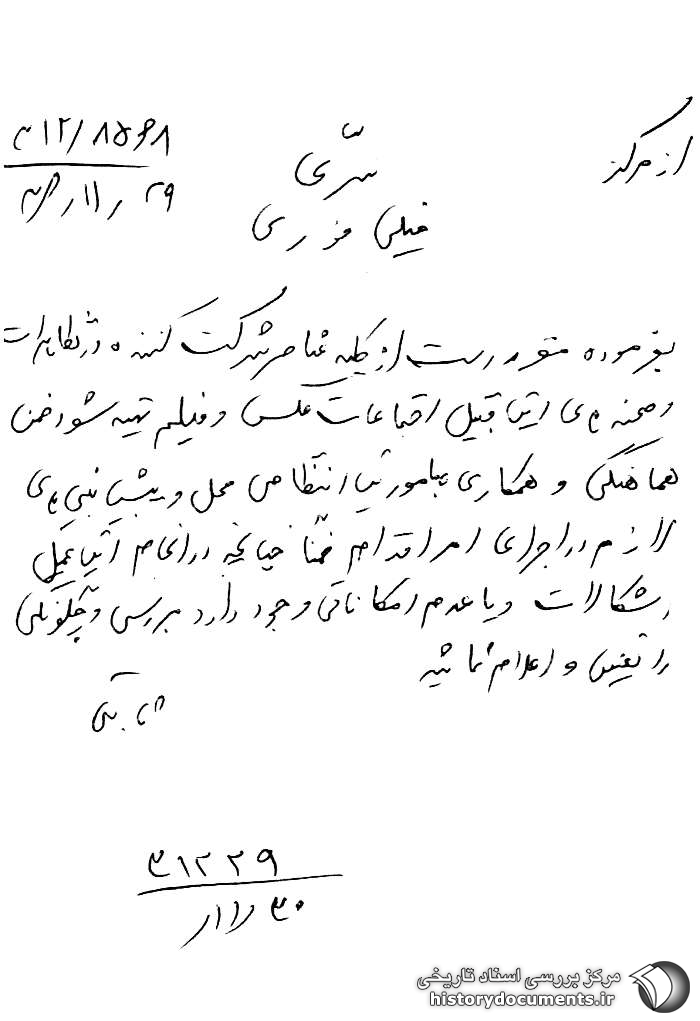 از مرکز
۳۱۲/۸۵۶۸
۲۹ ر ۱۱ ر
سرّی
خیلی فوری
بفرموده مقرر است از کلیه عناصر شرکت کننده در تظاهرات
و صحنه های این قبیل اجتماعات عکس و فیلم تهیه شود ضمن
هماهنگی و همکاری با مامورین انتظامی محل و پیش بینی های
لازم در اجرای امر اقدام ضمناً چنانچه در انجام این عمل
اشکالات و یا عدم امکاناتی وجود دارد بررسی و چگونگی
را تعیین و اعلام نمائید
۳۱۲۲۹
۳۰ ر ۱۱ ر
مرکز بررسی اسناد تاریخی
historydocuments.ir